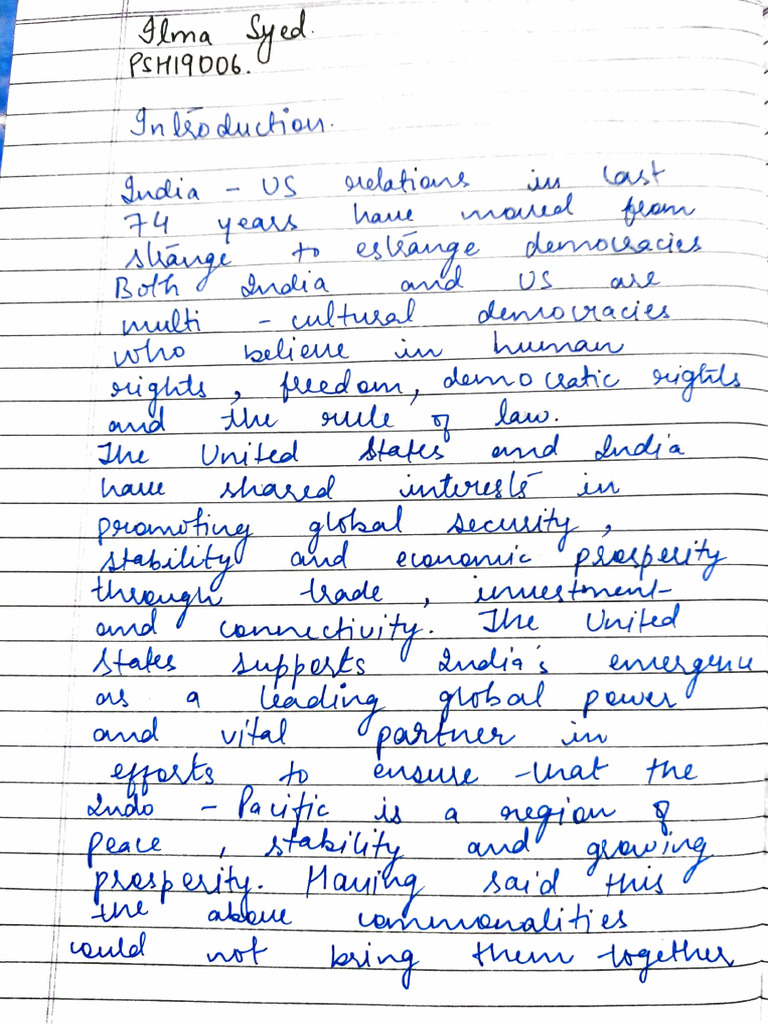 Ilma Syed.
PSH19006.
Introduction.
India - US relations in last
74 years have moved from
strange to estrange democracies
Both India and US are
multi - cultural democracies
who believe in human
rights, freedom, democratic rights
and the rule of law.
The United States and India
have shared interests in
promoting global security,
stability and economic prosperity
through trade, investment
and connectivity. The United
States supports India's emergence
as a leading global power
and vital partner in
efforts to ensure that the
Indo - Pacific is a region of
peace, stability and growing
prosperity. Having said this
the above commonalities
could not bring them together